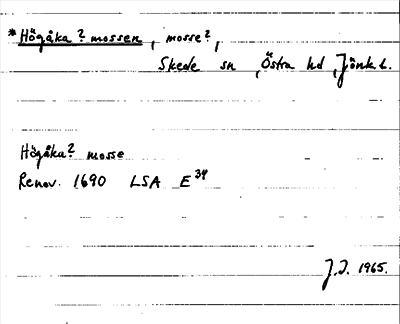 *Högåka? mossen, mosse?,
Skede sn, Östra hd, Jönk.l.
Högåka? mosse
Renov. 1690 LSA E 34
J.J. 1965.